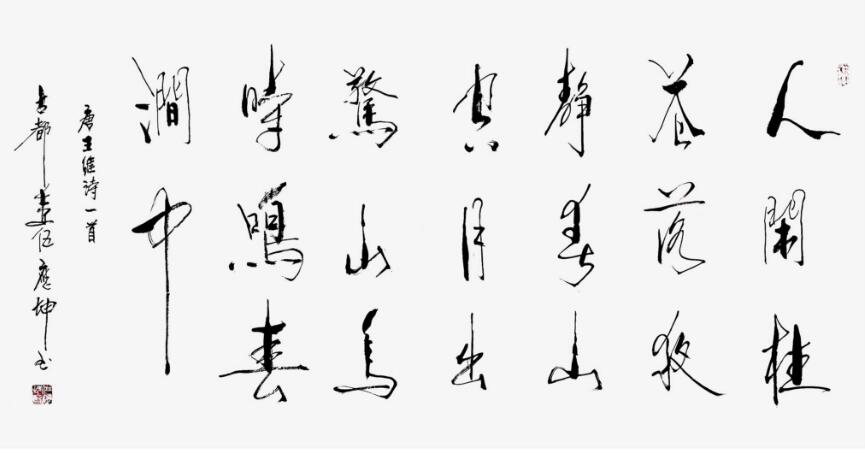 人閑桂
花落夜
静春山
空月出
驚山鳥
時鳴春
澗中
唐王維诗一首
古都伍應坤书